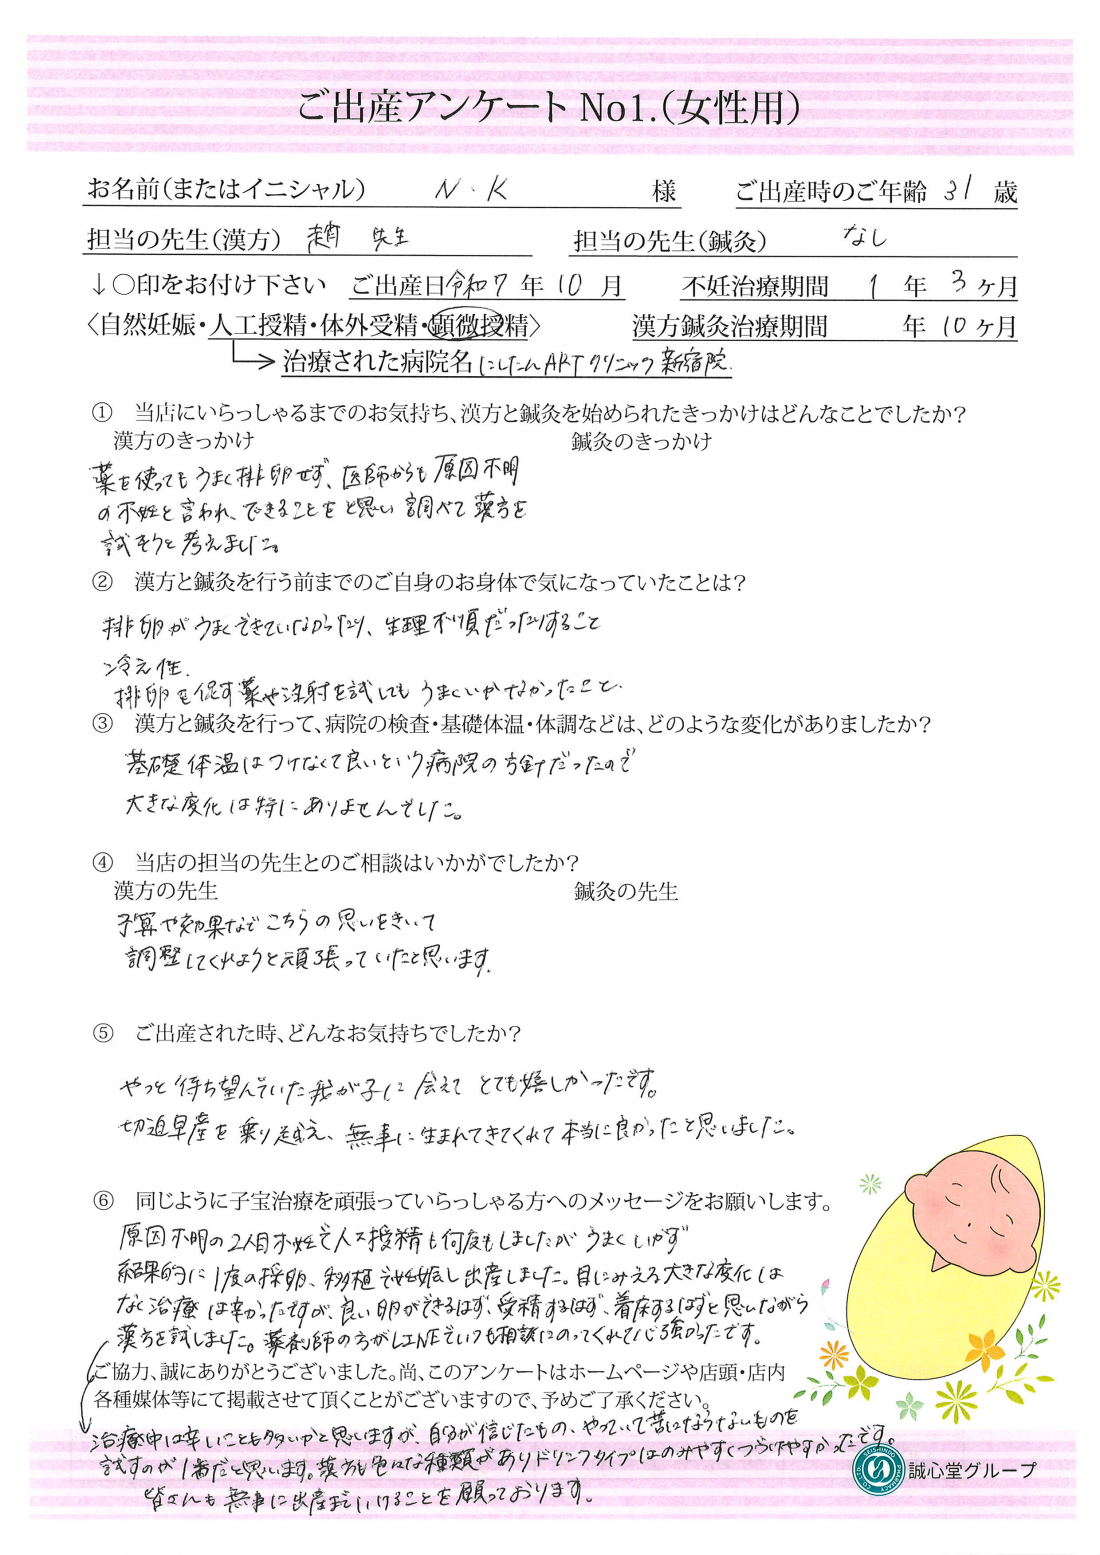 ご出産アンケート No1.(女性用)
お名前(またはイニシャル) N・K 様 ご出産時のご年齢 31 歳
担当の先生(漢方) 趙 先生 担当の先生(鍼灸) なし
↓〇印をお付け下さい ご出産日令和7年10月 不妊治療期間 1年3ヶ月
〈自然妊娠・人工授精・体外受精・顕微授精〉 漢方鍼灸治療期間 年10ヶ月
治療された病院名 にしたんARTクリニック新宿院.
① 当店にいらっしゃるまでのお気持ち、漢方と鍼灸を始められたきっかけはどんなことでしたか？
漢方のきっかけ 鍼灸のきっかけ
薬を使ってもうまく排卵せず、医師からも原因不明
の不妊と言われ、できることをと思い調べて漢方を
試そうと考えました。
② 漢方と鍼灸を行う前までのご自身のお身体で気になっていたことは？
排卵がうまくできていなかったり、生理不順だったりすること
冷え性.
排卵を促す薬や注射を試してもうまくいかなかったこと.
③ 漢方と鍼灸を行って、病院の検査・基礎体温・体調などは、どのような変化がありましたか？
基礎体温はつけなくて良いという病院の方針だったので
大きな変化は特にありませんでした。
④ 当店の担当の先生とのご相談はいかがでしたか？
漢方の先生 鍼灸の先生
予算や効果などこちらの思いをきいて
調整してくれようと頑張っていたと思います.
⑤ ご出産された時、どんなお気持ちでしたか？
やっと待ち望んでいた我が子に会えてとても嬉しかったです。
切迫早産を乗り越え、無事に生まれてきてくれて本当に良かったと思いました。
⑥ 同じように子宝治療を頑張っていらっしゃる方へのメッセージをお願いします。
原因不明の2人目不妊で人工授精も何度もしましたがうまくいかず
結果的に1度の採卵、移植で妊娠し出産しました。目にみえる大きな変化は
なく治療は辛かったですが、良い卵ができるはず、受精するはず、着床するはずと思いながら
漢方を試しました。薬剤師の方がLINEでいつも相談にのってくれて心強かったです。
ご協力、誠にありがとうございました。尚、このアンケートはホームページや店頭・店内
各種媒体等にて掲載させて頂くことがございますので、予めご了承ください。
治療中は辛いことも多いかと思いますが、自分が信じたもの、やっていて苦にならないものを
試すのが1番だと思います。漢方も色々な種類がありドリンクタイプはのみやすくつづけやすかったです。
皆さんも無事に出産までいけることを願っております。
誠心堂グループ